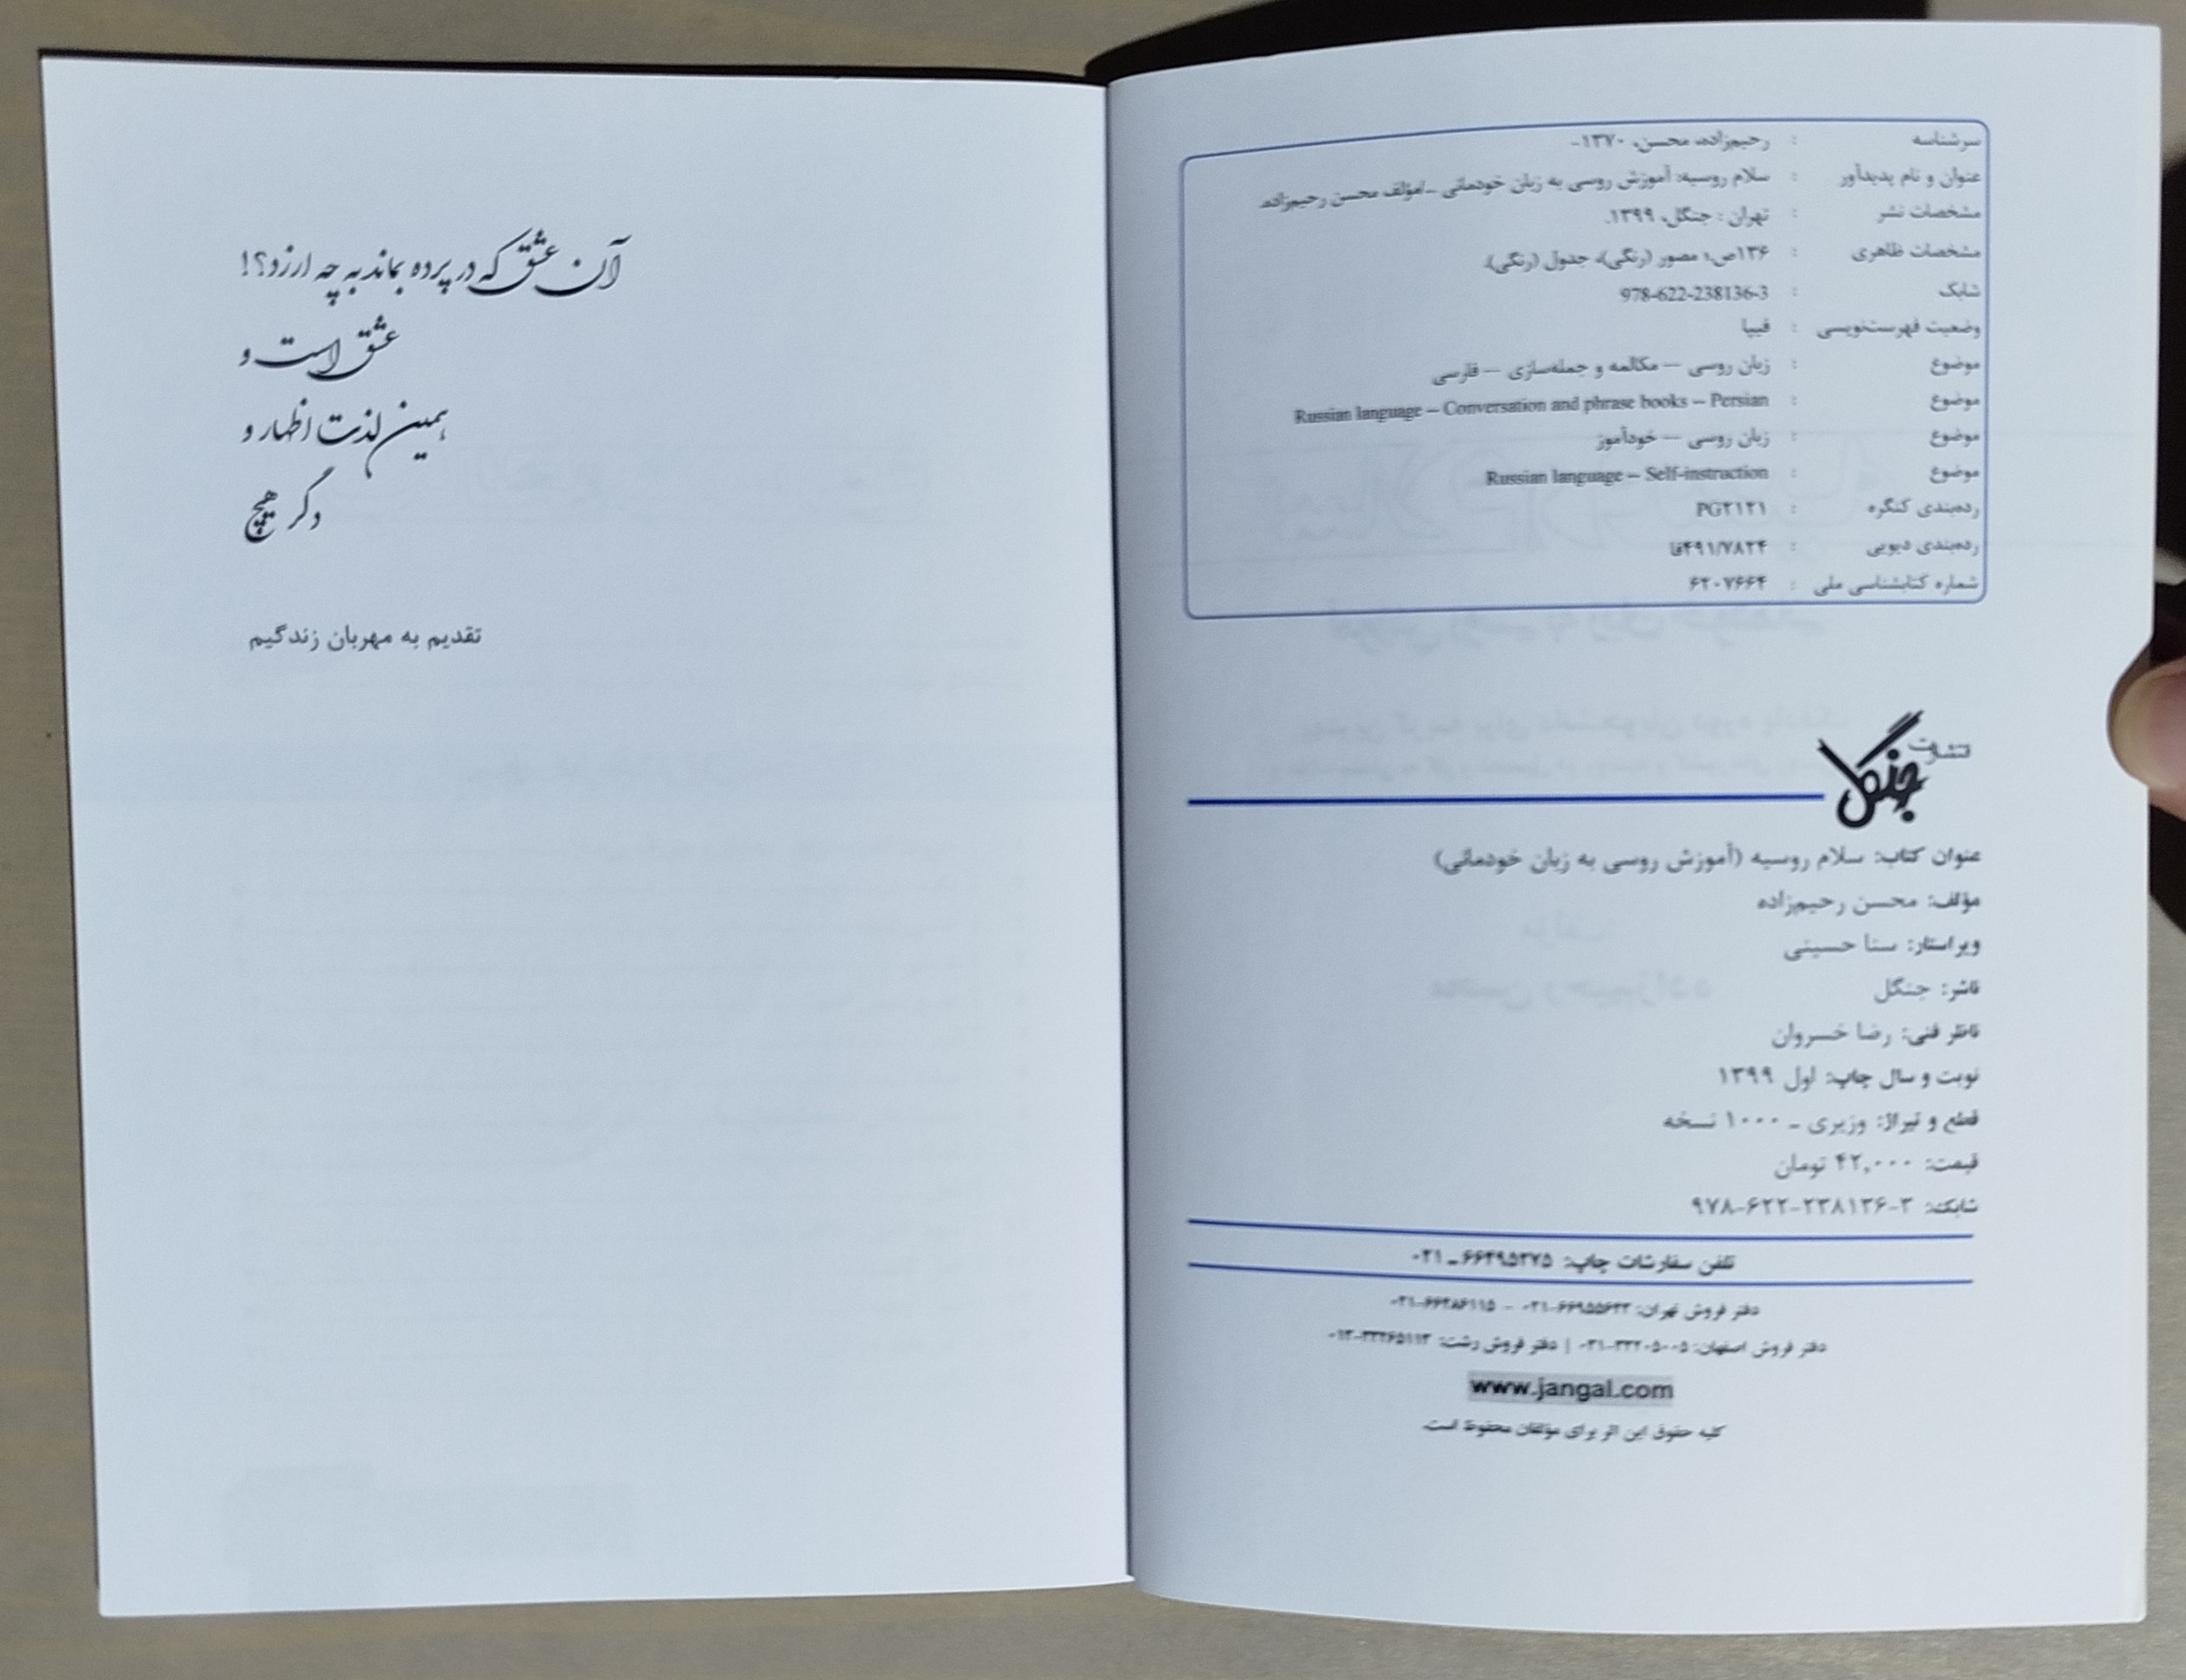 سرشناسه : رحیم‌زاده، محسن، ۱۳۷۰-
عنوان و نام پدیدآور : سلام روسیه: آموزش روسی به زبان خودمانی -/مؤلف محسن رحیم‌زاده.
مشخصات نشر : تهران : جنگل، ۱۳۹۹.
مشخصات ظاهری : ۱۳۶ص؛ مصور (رنگی)، جدول (رنگی).
شابک : 978-622-238136-3
وضعیت فهرست‌نویسی : فیپا
موضوع : زبان روسی -- مکالمه و جمله‌سازی -- فارسی
موضوع : Russian language – Conversation and phrase books – Persian
موضوع : زبان روسی -- خودآموز
موضوع : Russian language – Self-instruction
رده‌بندی کنگره : PG۲۱۲۱
رده‌بندی دیویی : ۴۹۱/۷۸۲۴فا
شماره کتابشناسی ملی : ۶۲۰۷۶۶۴
انتشارات جنگل
عنوان کتاب: سلام روسیه (آموزش روسی به زبان خودمانی)
مؤلف: محسن رحیم‌زاده
ویراستار: سنا حسینی
ناشر: جنگل
ناظر فنی: رضا خسروان
نوبت و سال چاپ: اول ۱۳۹۹
قطع و تیراژ: وزیری ـ ۱۰۰۰ نسخه
قیمت: ۴۲,۰۰۰ تومان
شابک: ۳-۲۳۸۱۳۶-۶۲۲-۹۷۸
تلفن سفارشات چاپ: ۶۶۴۹۵۲۷۵ ـ ۰۲۱
دفتر فروش تهران:
دفتر فروش اصفهان: | دفتر فروش رشت:
www.jangal.com
کلیه حقوق این اثر برای مؤلفان محفوظ است.
آن عشق که در پرده بماند به چه ارزد؟!
عشق است و
همین لذت اظهار و
دگر هیچ
تقدیم به مهربان زندگیم